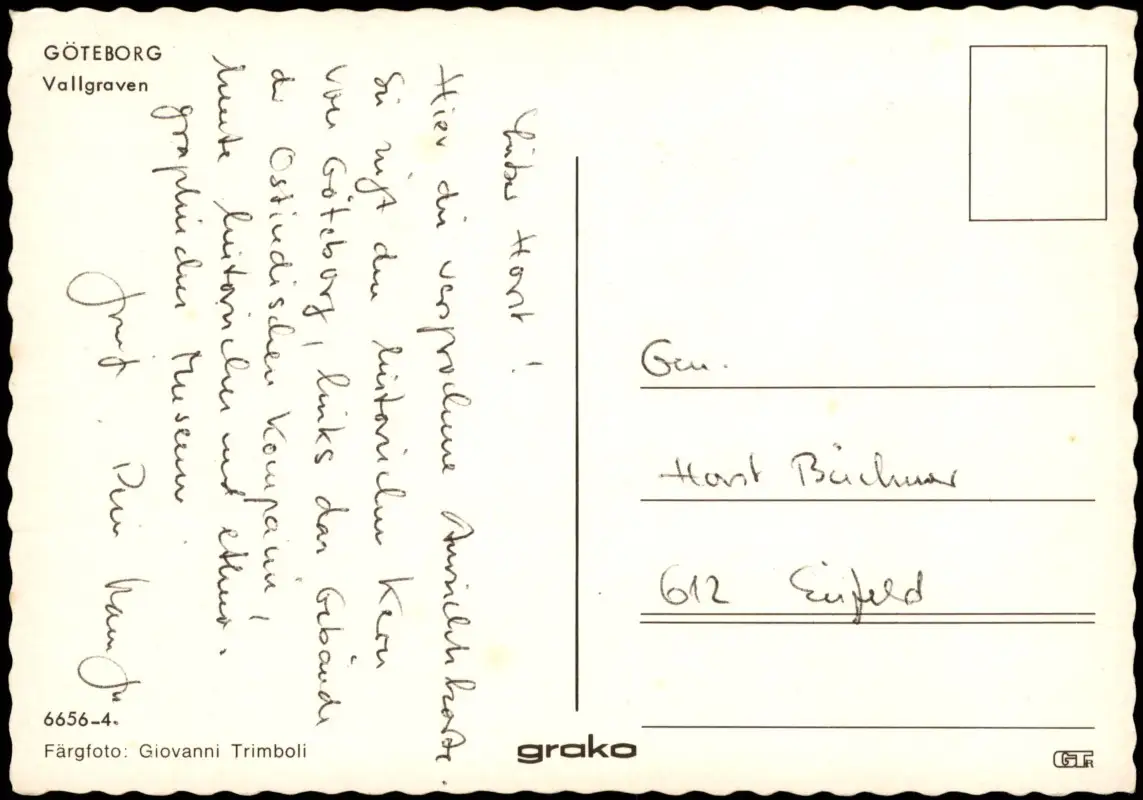 GÖTEBORG
Vallgraven
Lieber Horst!
Hier die versprochene Ansichtskarte.
Sie zeigt den historischen Kern
von Göteborg, links das Gebäude
der Ostindischen Kompanie,
heute historisches und ethno-
graphisches Museum
Gruß. Dein
6656-4.
Färgfoto: Giovanni Trimboli
grako
Gen.
Horst Büchner
612 Eisfeld
GTR